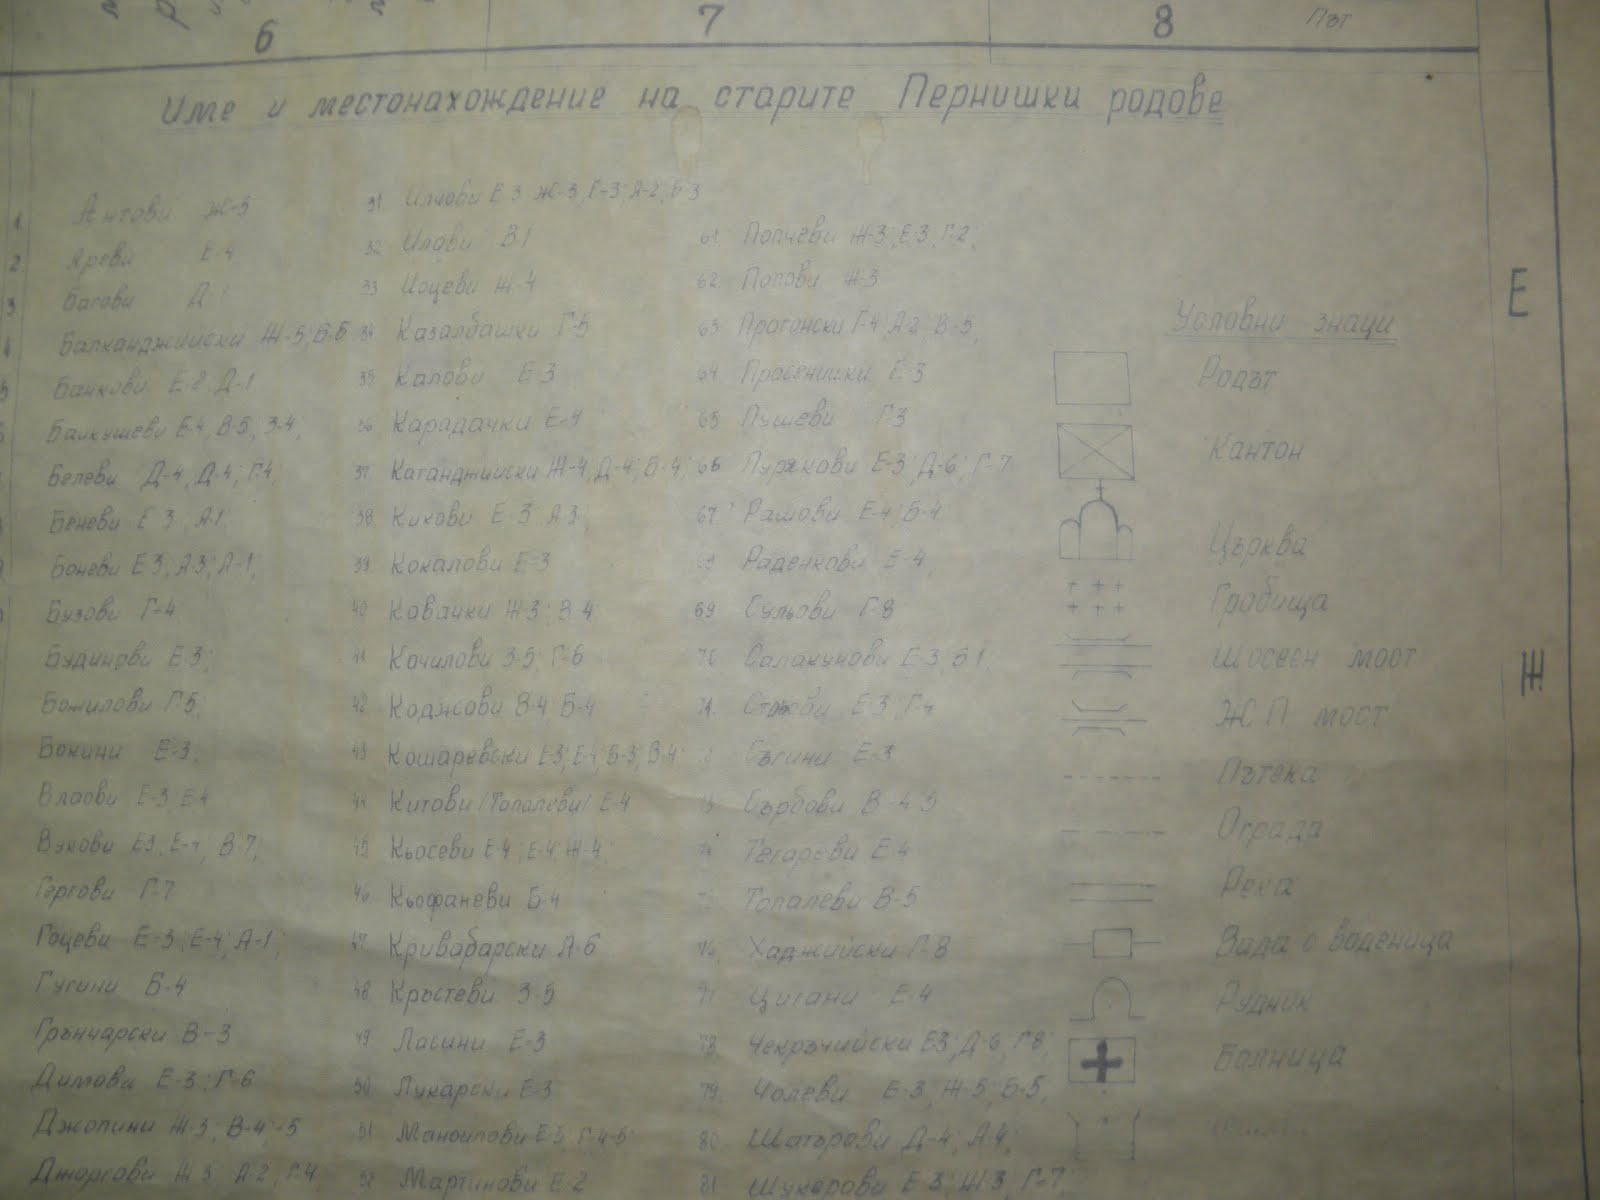 6
7
8
Път
Име и местонахождение на старите Пернишки родове
1. Антови Ж-3
2. Ареви Е-4
3. Багови Д-1
4 Балканджийски Ж-5; Б-5
Банкови Е-2 Д-1
Баикушеви Е-4, В-5, З-4;
Белеви Д-4, Д-4; Г-4
Беневи Е-3, А-1;
Боневи Е-3, А-3; А-1;
Бузови Г-4
Будинови Е-3;
Божилови Г-5;
Бокини Е-3;
Влаови Е-3; Е-4
Вукови Е-3; Е-4, В-7;
Гергови Г-7
Гоцеви Е-3; Е-4; А-1;
Гугини Б-4
Грънчарски В-3
Димови Е-3; Г-6
Джопини Ж-3; В-4;-5
Джоргови Ж-3, А-2, Г-4
31 Илчови Е-3 Ж-3, Г-3; А-2; Б-3
32 Илови В1
33 Иоцеви Ж-4
34 Казалбашки Г-5
35. Калови Е-3
36 Карадачки Е-4
37 Катанджийски Ж-4; Д-4; Б-4;
38. Кикови Е-3 А-3;
39. Кокалови Е-3
40 Ковачки Ж-3; В-4
41 Кочилови З-5; Г-6
42 Коджови В-4 Б-4
43 Кошаревски Е-3; Е-4; Б-3; В-4;
44 Китови /Топалеви/ Е-4
45 Кьосеви Е-4; Е-4; Ж-4;
46. Кьофаневи Б-4
47. Кривабарски А-6
48 Кръстеви З-5
49 Ласини Е-3
50 Лукарски Е-3
51 Маноилови Е-3; Г-4-5;
52 Мартинови Е-2
61. Попчеви Ж-3; Е-3, Г-2;
62. Попови Ж-3
63. Прогонски Г-4; А-2; В-5;
64. Просенишки Е-3
65 Пушеви Г-3
66 Пуржкови Е-3; Д-6; Г-7
67. Рамови Е-4; Б-4
Раденкови Е-4;
69 Сульови Г-8
70. Салакунови Е-3; Б1;
71. Е-3; Г-4
Съгини Е-3
Сърбови В-4-3
Тегарови Е-4
Топалеви В-5
76. Хаджийски Г-8
Цигани Е-4
78. Чекръчийски Е-3; Д-6, Г-8;
79. Чолеви Е-3, Ж-5; Б-5;
80. Шатърови Д-4; А-4;
81 Шукерови Е-3; Ж-3, Г-7;
Условни знаци
Родът
Кантон
Църква
Гробища
Шосеен мост
ЖП мост
Пътека
Ограда
Река
Вада с воденица
Рудник
Болница
Е
Ж